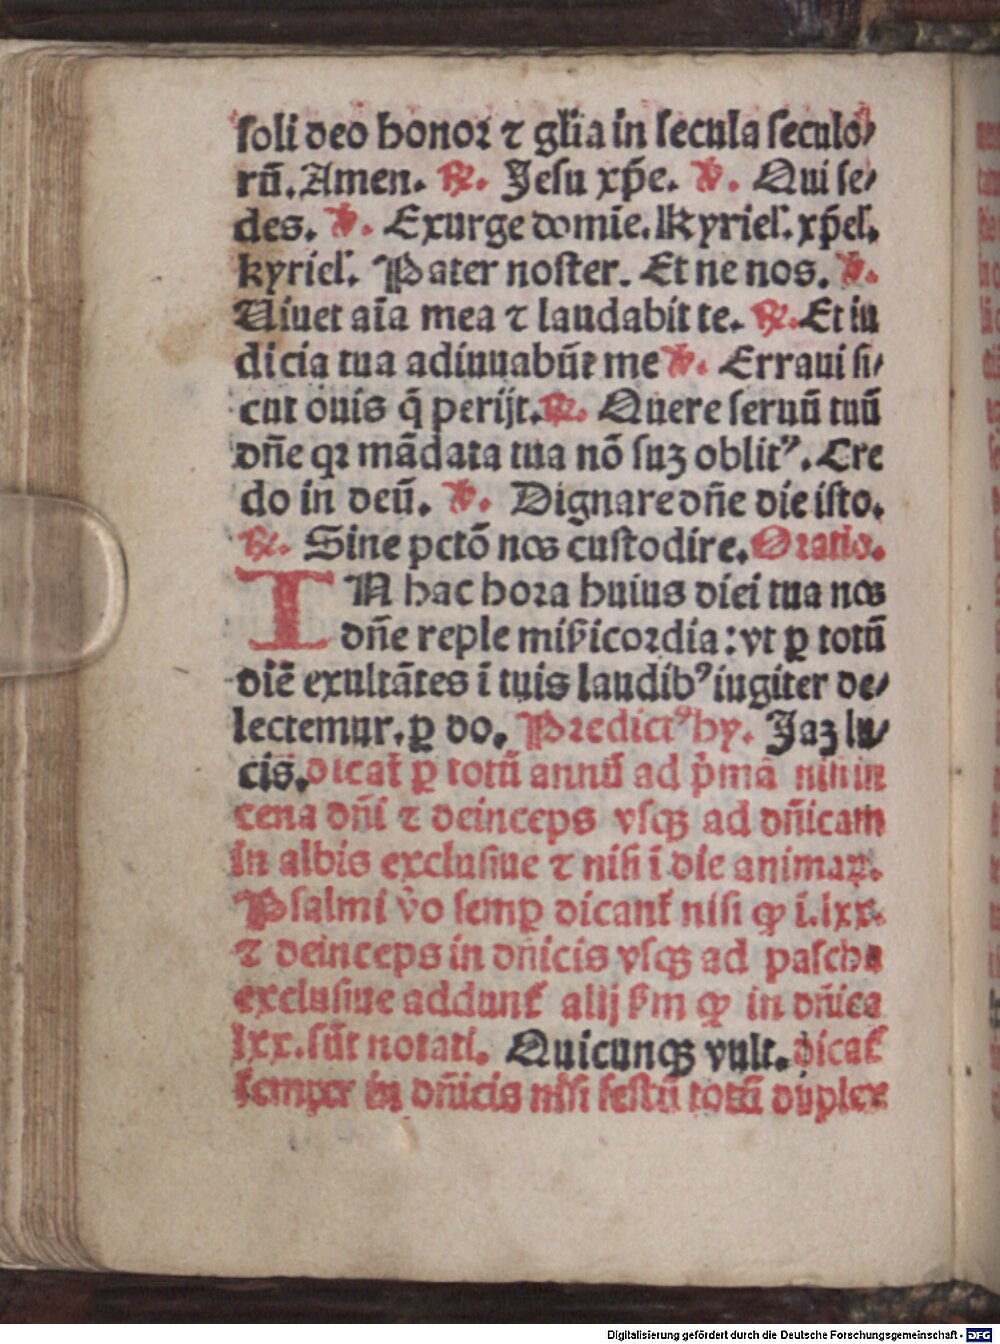 soli deo honor ⁊ glīa in secula seculo/
rū. Amen. ℟. Jesu xp̄e. ℣. Qui se/
des. ℣. Exurge domīe. Kyriel̕. xp̄el̕.
kyriel̕. Pater noster. Et ne nos. ℣.
Uiuet aīa mea ⁊ laudabit te. ℟. Et iu
dicia tua adiuuabūt me ℣. Erraui si/
cut ouis q̄ perijt. ℟. Quere seruū tuū
dn̄e qꝛ mādata tua nō suꝫ oblitꝰ. Cre
do in deū. ℣. Dignare dn̄e die isto.
℟. Sine pctō nos custodire. Oratio.
IN hac hora huius diei tua nos
dn̄e reple mi̕sicordia: vt ꝑ totū
diē exultātes ī tuis laudibꝰ iugiter de/
lectemur. ꝑ do. Predictꝰ hy. Jaꝫ lu/
cis. dicat̕ ꝑ totū annū ad p̄mā nisi in
cena dn̄i ⁊ deinceps vsqꝫ ad dn̄icam
in albis exclusiue ⁊ nisi ī die animaꝝ.
Psalmi v̄o semꝑ dicant̕ nisi ꝙ ī. lxx.
⁊ deinceps in dn̄icis vsqꝫ ad pascha
exclusiue addunt̕ alij s̕m ꝙ in dn̄ica
lxx. sūt notati. Quicunqꝫ vult. dicat̕
semper in dn̄icis nisi festū totū duplex
Digitalisierung gefördert durch die Deutsche Forschungsgemeinschaft - DFG